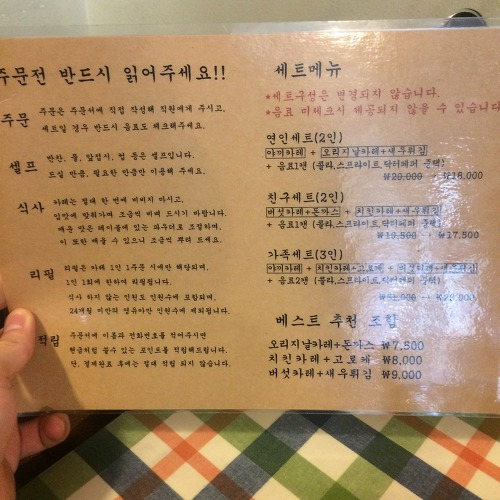 주문전 반드시 읽어주세요!!
주문
주문은 주문서에 직접 작성해 직원에게 주시고,
세트일 경우 반드시 음료도 체크해주세요.
셀프
반찬, 물, 앞접시, 컵 등은 셀프입니다.
드실 만큼, 필요한 만큼만 이용해 주세요.
식사
카레는 절대 한 번에 비비지 마시고,
입맛에 맞춰가며 조금씩 비벼 드시기 바랍니다.
매운 맛은 테이블에 있는 파우더로 조절하며,
이 또한 매울 수 있으니 조금씩 뿌려 드세요.
리필
리필은 카레 1인 1주문 시에만 해당되며,
1인 1회에 한하여 리필됩니다.
식사 하지 않는 인원도 인원수에 포함되며,
24개월 미만의 영유아만 인원수에 제외됩니다.
적립
주문서에 이름과 전화번호를 적어주시면
현금처럼 쓸수 있는 포인트를 적립해드립니다.
단, 결제완료 후에는 절대 적립 되지 않습니다.
세트메뉴
*세트구성은 변경되지 않습니다.
*음료 미체크시 제공되지 않을 수 있습니다
연인세트(2인)
아끼카레 + 오리지날카레+새우튀김
+ 음료1캔 (콜라,스프라이트,닥터페퍼 중택)
₩20,000 → ₩18,000
친구세트(2인)
버섯카레+돈까스 + 치킨카레+새우튀김
+ 음료1캔 (콜라,스프라이트,닥터페퍼 중택)
₩19,500 → ₩17,500
가족세트(3인)
아끼카레 + 치킨카레+고로케 + 버섯카레+새우튀김
+ 음료2캔 (콜라,스프라이트,닥터페퍼 중택)
베스트 추천 조합
오리지날카레+돈까스 ₩7,500
치킨카레+고로케 ₩8,000
버섯카레+새우튀김 ₩9,000